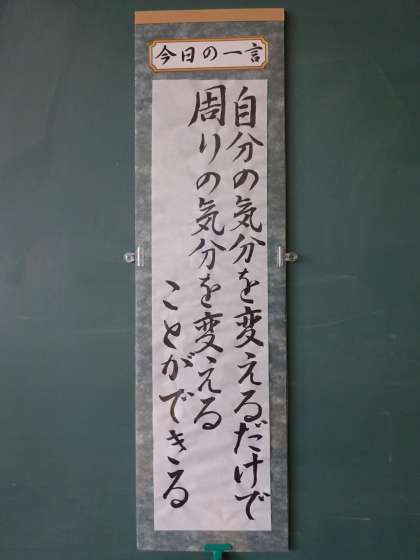 今日の一言
自分の気分を変えるだけで
周りの気分を変える
ことができる